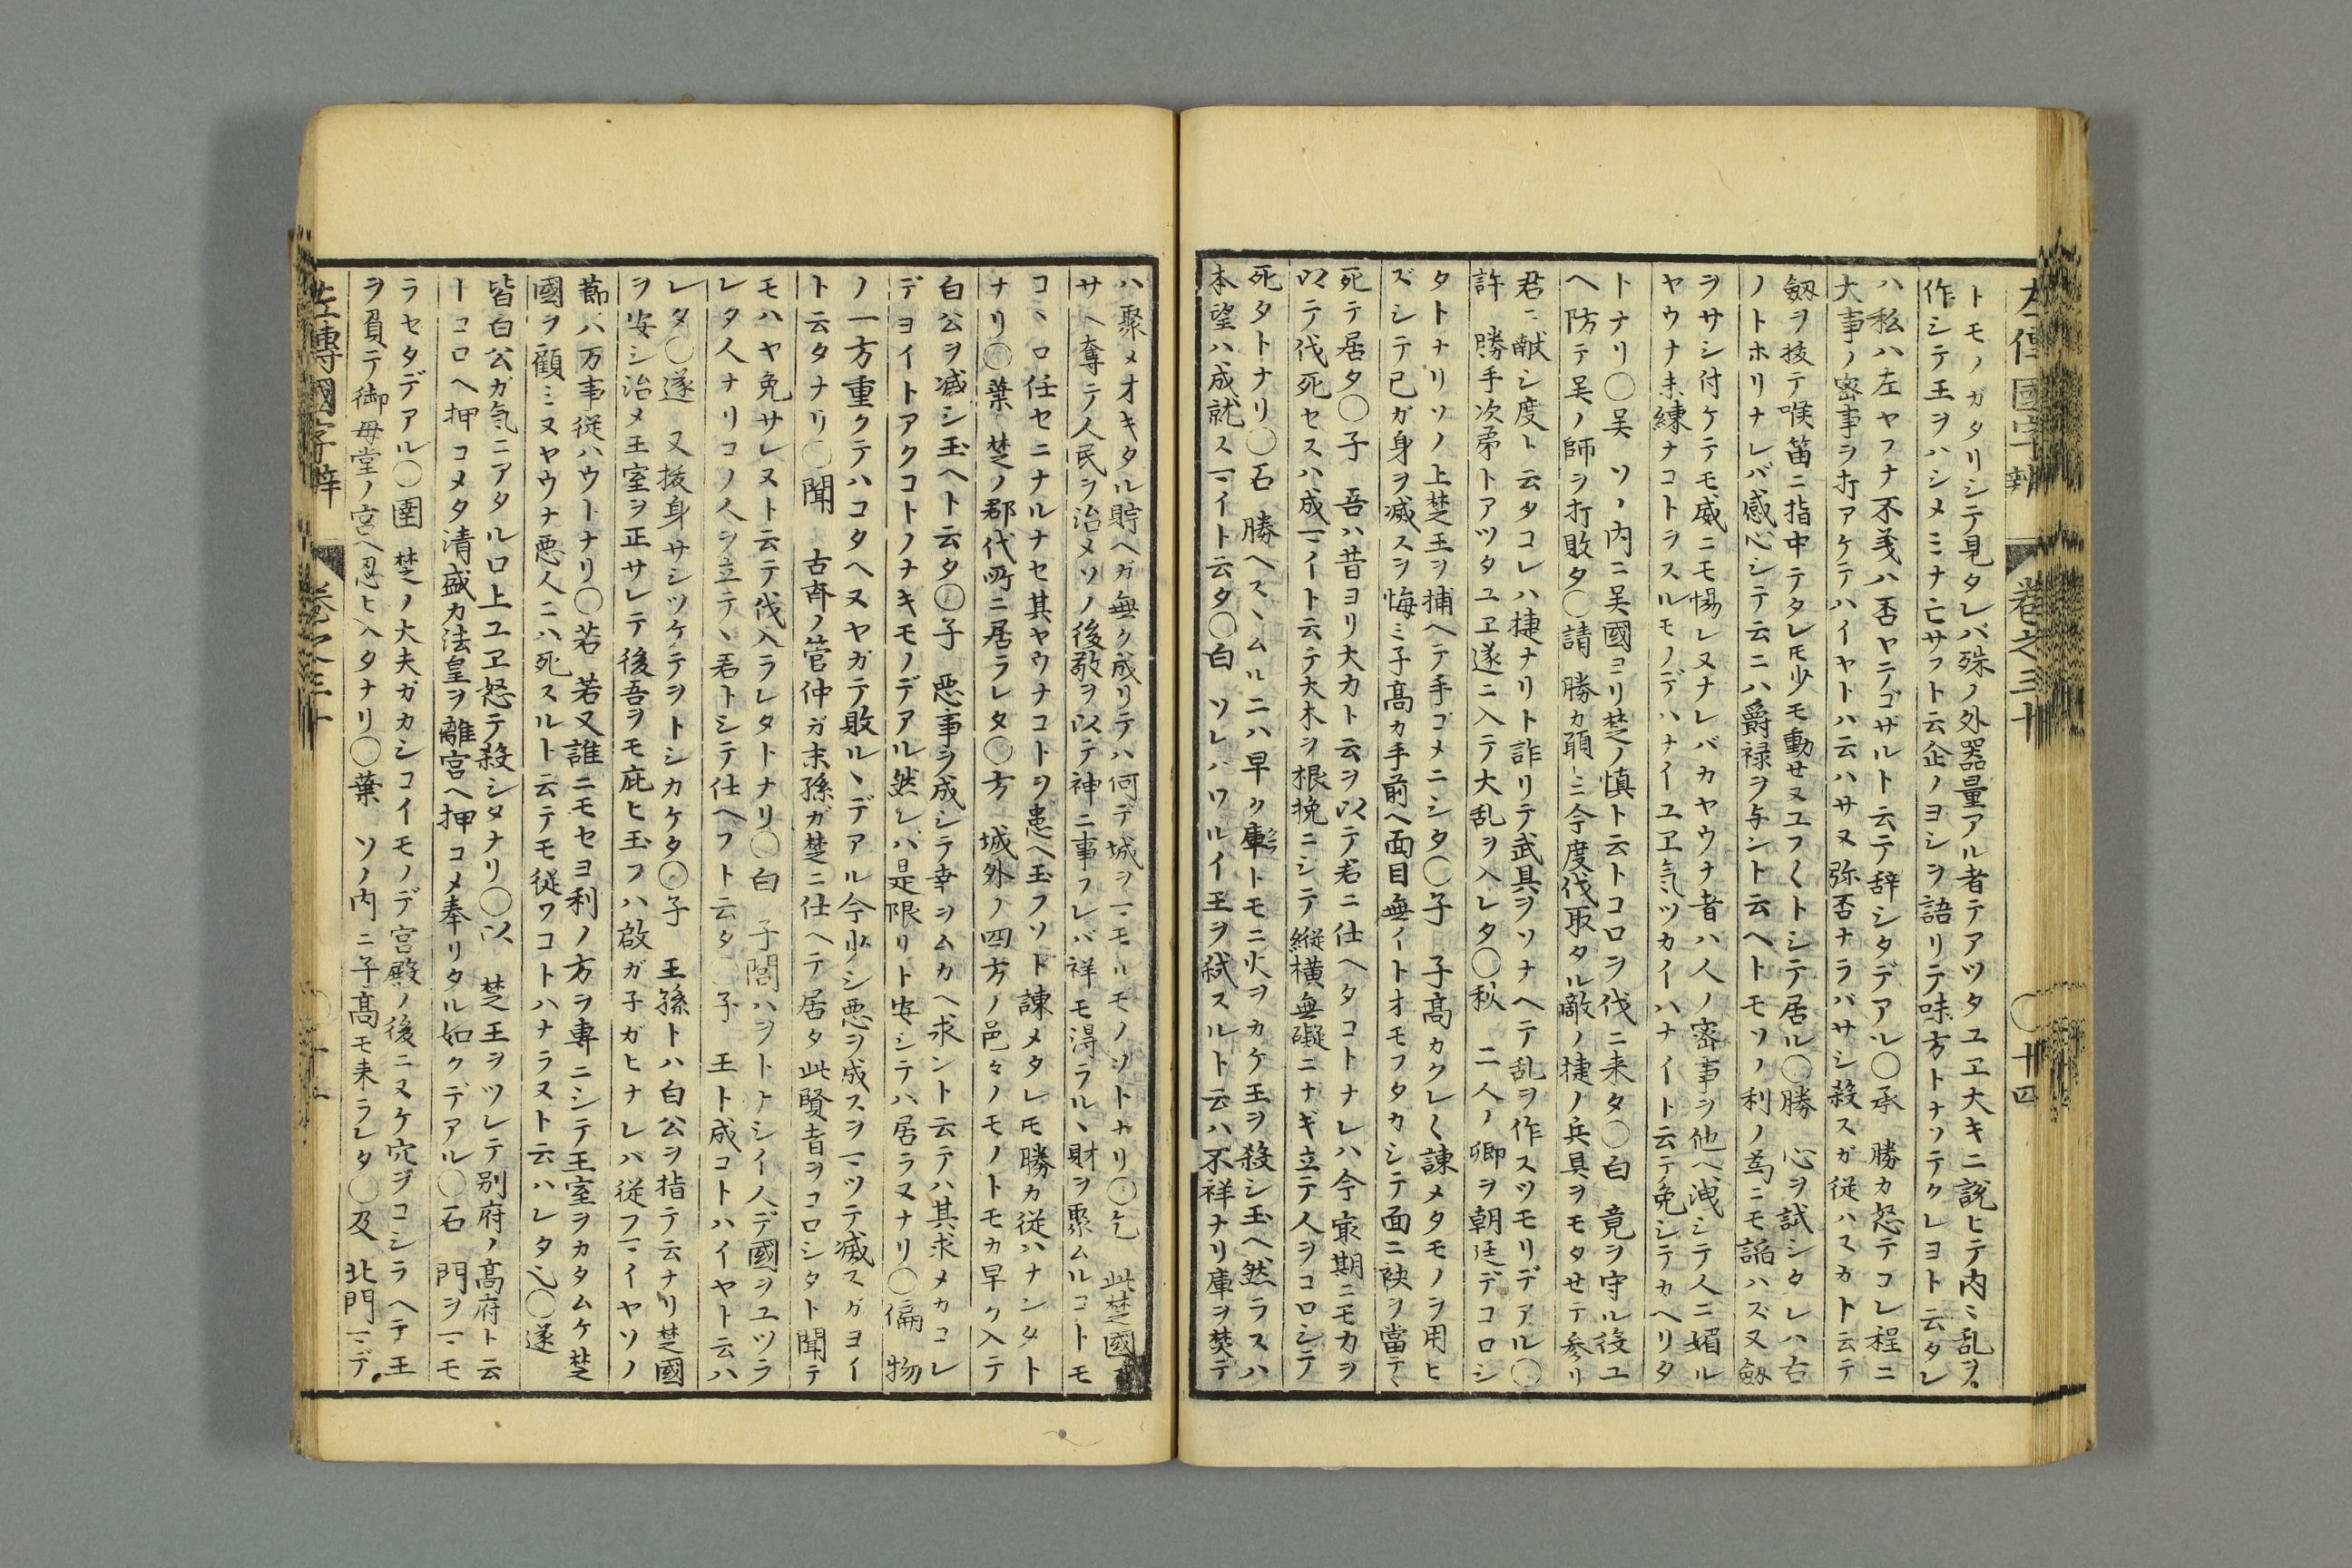 左傳國字辯　卷之三十　〇十四
トモノガタリシテ見タレバ殊ノ外器量アル者テアツタユヱ大キニ説ヒテ内ミ乱ヲ
作シテ王ヲハシメミナ亡サフト云企ノヨシヲ語リテ味方トナツテクレヨト云タレ
ハ私ハ左ヤフナ不義ハ否ヤテゴザルト云テ辞シタデアル〇承　勝カ怒テコレ程ニ
大事ノ密事ヲ打アケテハイヤトハ云ハサヌ弥否ナラバサシ殺スガ従ハスカト云テ
劔ヲ抜テ喉笛ニ指中テタレ𪜈少モ動せヌユフ〱トシテ居ル〇勝　心ヲ試シタレハ右
ノトホリナレバ感心シテ云ニハ爵禄ヲ与ント云ヘトモソノ利ノ為ニモ謟ハズ又劔
ヲサシ付ケテモ威ニモ惕レヌナレバカヤウナ者ハ人ノ密事ヲ他ヘ洩シテ人ニ媚ル
ヤウナ未練ナコトヲスルモノデハナイユヱ気ツカイハナイト云テ免シテカヘリタ
トナリ〇吴　ソノ内ニ吴國ヨリ楚ノ慎ト云トコロヲ伐ニ来タ〇白　竟ヲ守ル役ユ
ヘ防テ吴ノ師ヲ打敗タ〇請　勝カ願ミニ今度伐取タル敵ノ捷ノ兵具ヲモタせテ参リ
君ニ献シ度ト云タコレハ捷ナリト詐リテ武具ヲソナヘテ乱ヲ作スツモリデアル〇
許　勝手次第トアツタユヱ遂ニ入テ大乱ヲ入レタ〇秋　二人ノ卿ヲ朝廷デコロシ
タトナリソノ上楚王ヲ捕ヘテ手ゴメニシタ〇子　子髙カクレ〱諌メタモノヲ用ヒ
ズシテ己ガ身ヲ滅スヲ悔ミ子髙カ手前ヘ面目無イトオモフタカシテ面ニ袂ヲ當テヽ
死テ居タ〇子　吾ハ昔ヨリ大カト云ヲ以テ君ニ仕ヘタコトナレハ今㝡期ニモカヲ
以テ伐死セスハ成マイト云テ大木ヲ根挽ニシテ縦横無礙ニナギ立テ人ヲコロシテ
死タトナリ〇石　勝ヘスヽムルニハ早ク庫トモニ火ヲカケ王ヲ殺シ玉ヘ然ラスハ
本望ハ成就スマイト云タ〇白　ソレハワルイ王ヲ弑スルト云ハ不祥ナリ庫ヲ焚テ
ハ聚メオキタル貯ヘガ無ク成リテハ何デ城ヲマモルモノソトナリ〇乞　此楚國
サヘ奪テ人民ヲ治メソノ後敬ヲ以テ神ニ事フレバ祥モ得ラルヽ財ヲ聚ムルコトモ
コヽロ任セニナルナセ其ヤウナコトヲ患ヘ玉フソト諌メタレ𪜈勝カ従ハナンタト
ナリ〇葉　楚ノ郡代所ニ居ラレタ〇方　城外ノ四方ノ邑々ノモノトモカ早ク入テ
白公ヲ滅シ玉ヘト云タ〇子　悪事ヲ成シテ幸ヲムカヘ求ント云テハ其求メカコレ
デヨイトアクコトノナキモノデアル然レバ是限リト安シテハ居ラヌナリ〇偏　物
ノ一方重クテハコタヘヌヤガテ敗ルヽデアル今少シ悪ヲ成スヲマツテ滅スガヨイ
ト云タナリ〇聞　古斉ノ管仲ガ末孫ガ楚ニ仕ヘテ居タ此賢者ヲコロシタト聞テ
モハヤ免サレヌト云テ伐入ラレタトナリ〇白　子閭ハヲトナシイ人デ國ヲユツラ
レタ人ナリコノ人ヲ立テヽ君トシテ仕ヘフト云タ　子　王ト成コトハイヤト云ハ
レタ〇遂　又抜身サシツケテヲトシカケタ〇子　王孫トハ白公ヲ指テ云ナリ楚國
ヲ安シ治メ王室ヲ正サレテ後吾ヲモ庇ヒ玉フハ啟ガ子ガヒナレバ従フマイヤソノ
莭ハ万事従ハウトナリ〇若　若又誰ニモセヨ利ノ方ヲ專ニシテ王室ヲカタムケ楚
國ヲ顧ミヌヤウナ悪人ニハ死スルト云テモ従ワコトハナラヌト云ハレタ〇遂
皆白公ガ気ニアタル口上ユヱ怒テ殺シタナリ〇以　楚王ヲツレテ别府ノ髙府ト云
トコロヘ押コメタ清盛カ法皇ヲ離宮ヘ押コメ奉リタル如クデアル〇石　門ヲマモ
ラセタデアル〇圉　楚ノ大夫ガカシコイモノデ宮殿ノ後ニヌケ穴ヲコシラヘテ王
ヲ負テ御母堂ノ宮ヘ忍ヒ入タナリ〇葉　ソノ内ニ子髙モ来ラレタ〇及　北門マデ
左傳國字辯　卷之三十